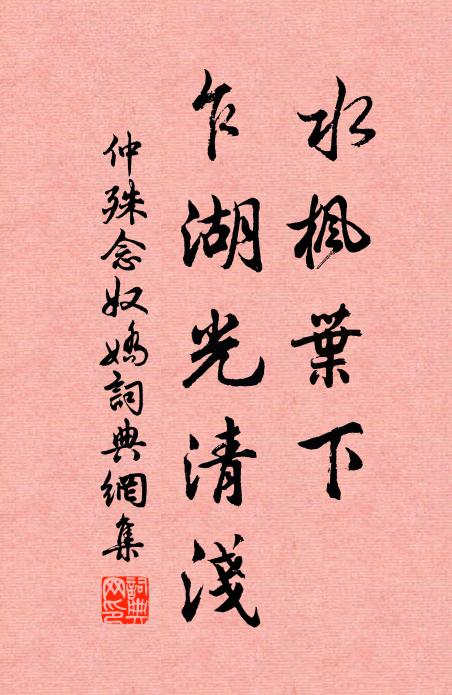 水楓葉下
乍湖光清淺
仲殊念奴嬌詞典網集
詞典網印